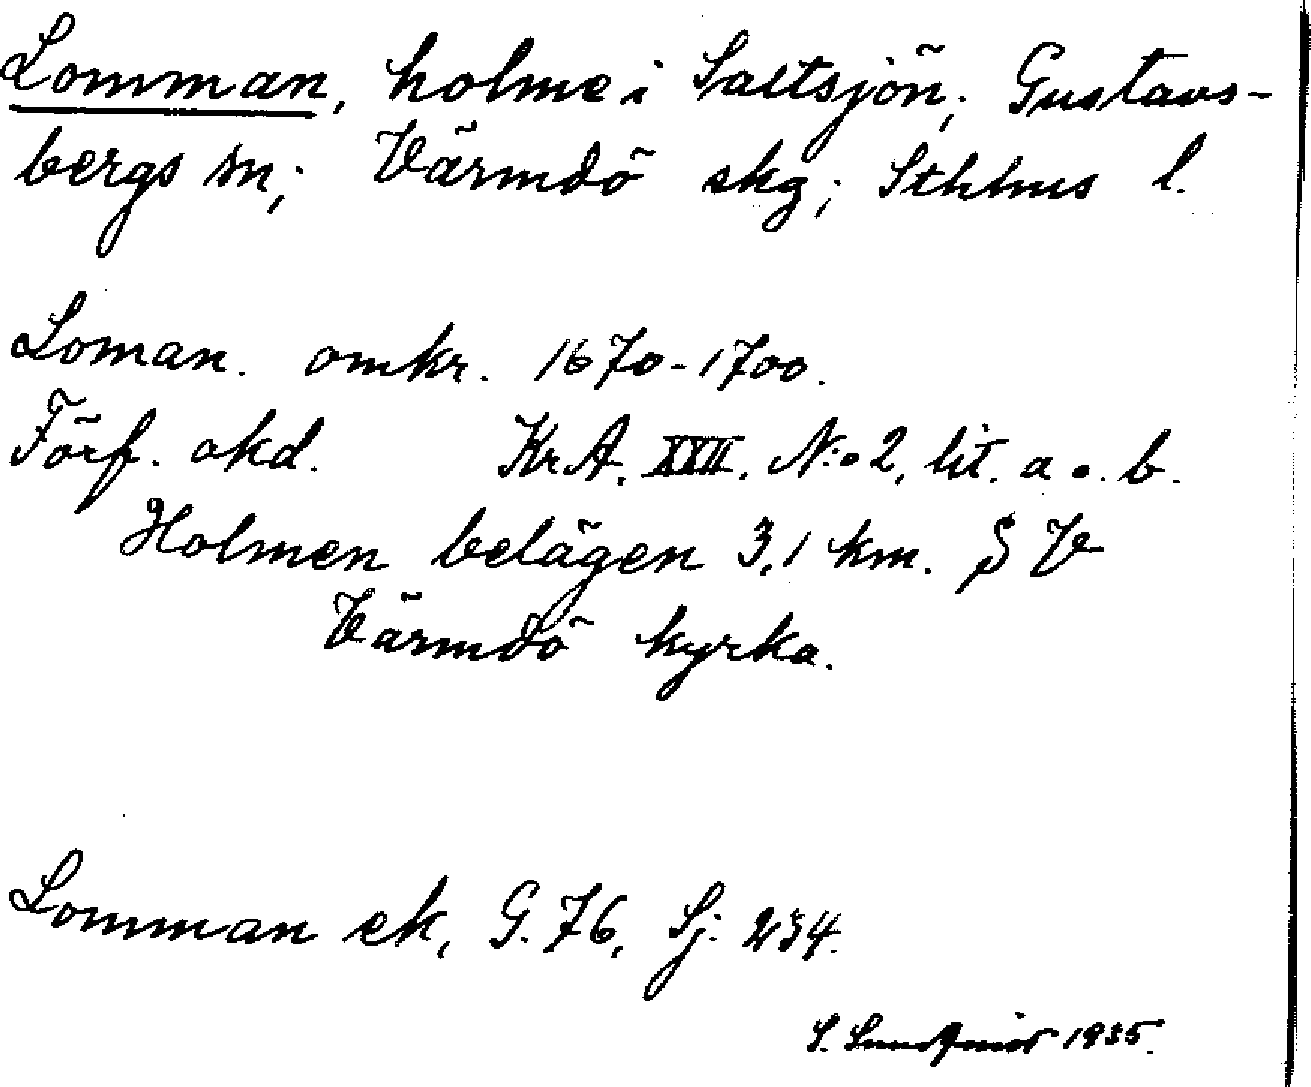 Lomman, holme i Saltsjön; Gustavs-
bergs sn; Värmdö skg; Sthlms l.
Loman. omkr. 1670-1700.
Förf. okd. KrA. XXII. N:o 2, lit. a o. b.
Holmen belägen 3,1 km. S V
Värmdö kyrka.
Lomman ek, G. 76, Sj. 234.
S. Sundqvist 1935.